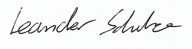 Leander Schulze